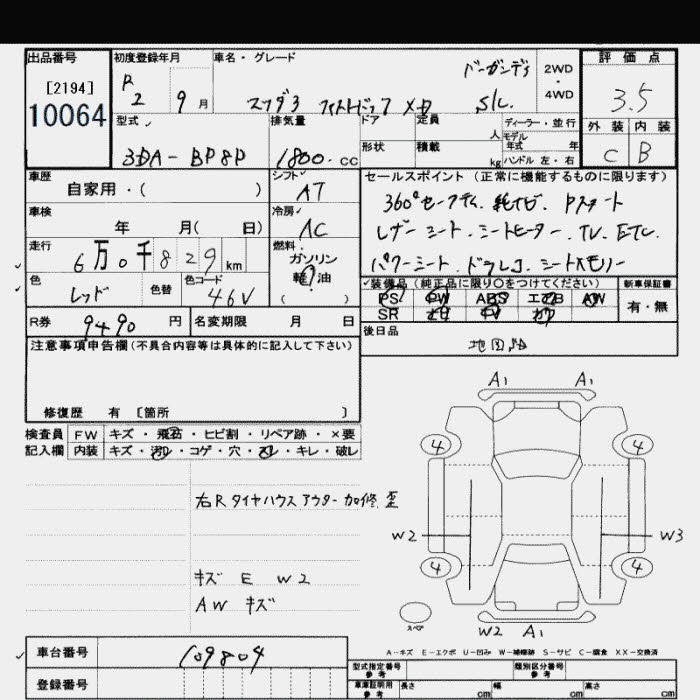 出品番号 初度登録年月 車名・グレード バーガンディ 2WD 評価点
[2194] R 2 9月 マツダ3 ファストバック XD S/L. ・ 4WD 3.5
10064 型式 排気量 ドア 定員 人 ディーラー・並行 外装 内装
3DA-BP8P 1800.cc 形状 積載 kg モデル年式 年 ハンドル 左・右 C B
車歴 シフト セールスポイント (正常に機能するものに限ります)
自家用・( ) AT 360°セーフティ. 純ナビ. Pスタート
車検 冷房
年 月( 日) AC レザーシート.シートヒーター.TV.ETC.
走行 燃料 ガソリン
6万0千829km 軽油 パワーシート.ドラレコ.シートメモリー
色 色替 色コード ( ) 装備品(純正品に限り○をつけてください) 新車保証書
レッド 46V PS PW ABS エアB AW 有・無
R券 9490 円 名変期限 月 日 SR ナビ TV カワ
注意事項申告欄(不具合内容等は具体的に記入して下さい) 後日品
修復歴 有 〔箇所 〕
検査員 FW キズ・飛石・ヒビ割・リペア跡・×要
記入欄 内装 キズ・汚れ・コゲ・穴・スレ・キレ・破レ
A1 A1
4 4
右Rタイヤハウスアウター加修.歪
W2 W3
4 4
キズ E W2
AW キズ
スペア
W2 A1
A-キズ E-エクボ U-凹み W-補修跡 S-サビ C-腐食 XX-交換済
車台番号 109804 型式指定番号 参考 類別区分番号 参考
登録番号 車庫証明用 参考 長さ cm 幅 cm 高さ cm